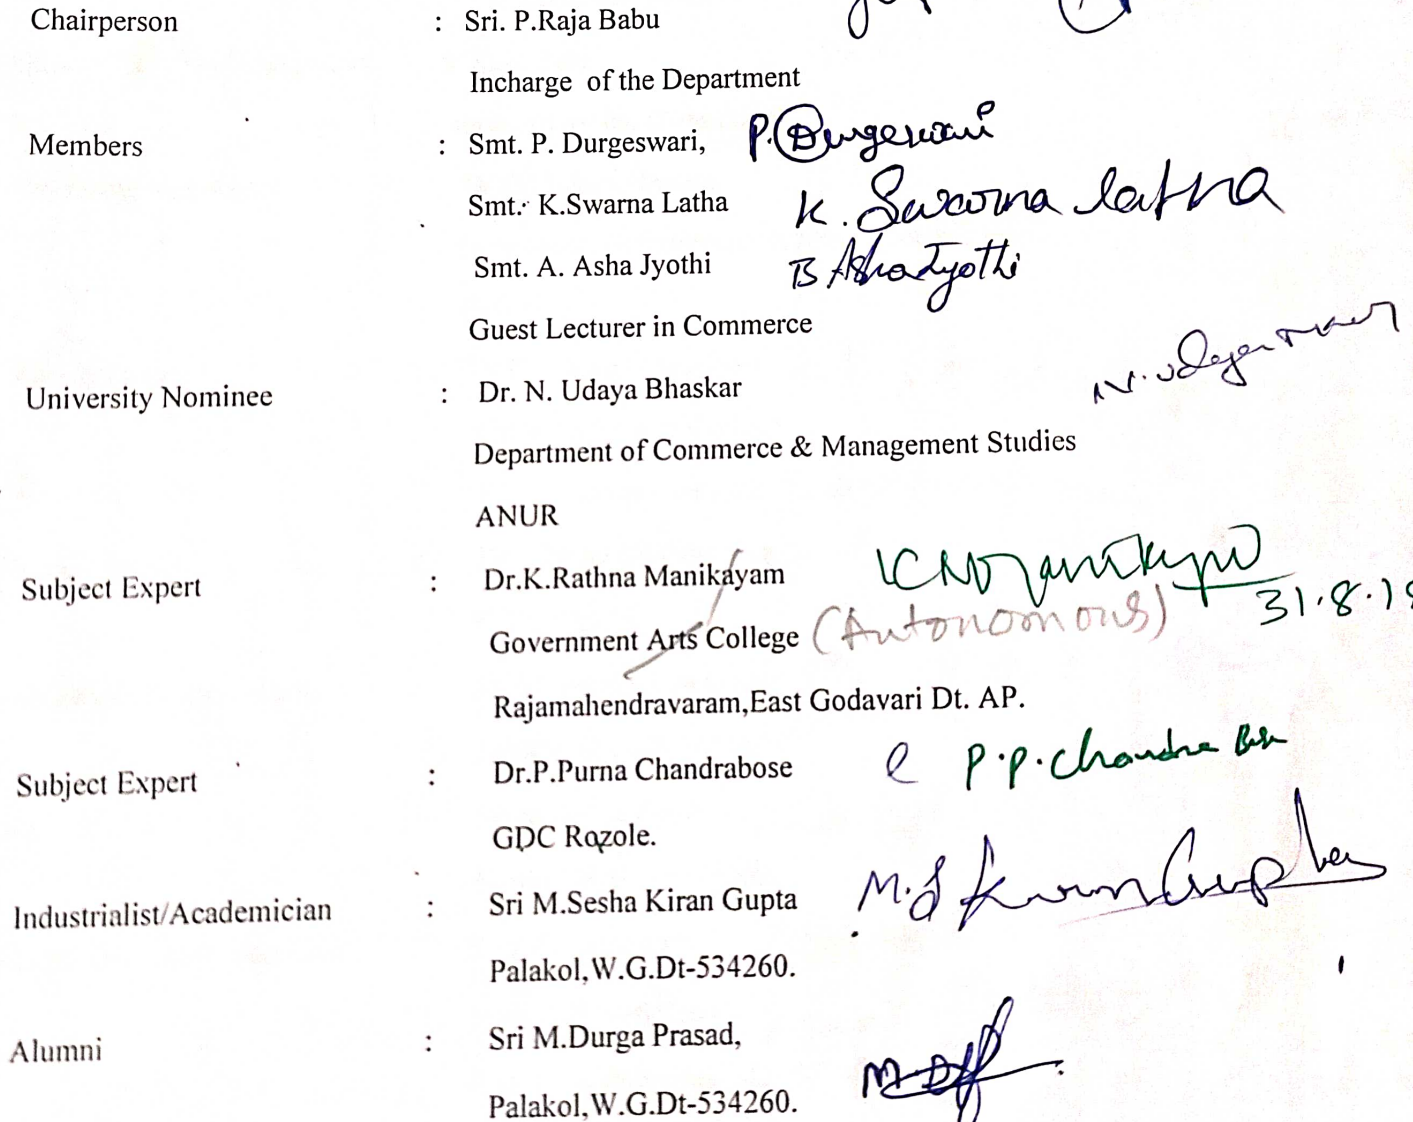 Chairperson : Sri. P.Raja Babu
Incharge of the Department
Members : Smt. P. Durgeswari, P. Durgeswari
Smt. K.Swarna Latha K. Swarna latha
Smt. A. Asha Jyothi B Asha Jyothi
Guest Lecturer in Commerce
University Nominee : Dr. N. Udaya Bhaskar
Department of Commerce & Management Studies
ANUR
Subject Expert : Dr.K.Rathna Manikayam
31.8.1
Government Arts College (Autonomous)
Rajamahendravaram,East Godavari Dt. AP.
Subject Expert : Dr.P.Purna Chandrabose P.P.Chandra
GDC Rozole.
Industrialist/Academician : Sri M.Sesha Kiran Gupta
Palakol,W.G.Dt-534260.
Alumni : Sri M.Durga Prasad,
Palakol,W.G.Dt-534260.